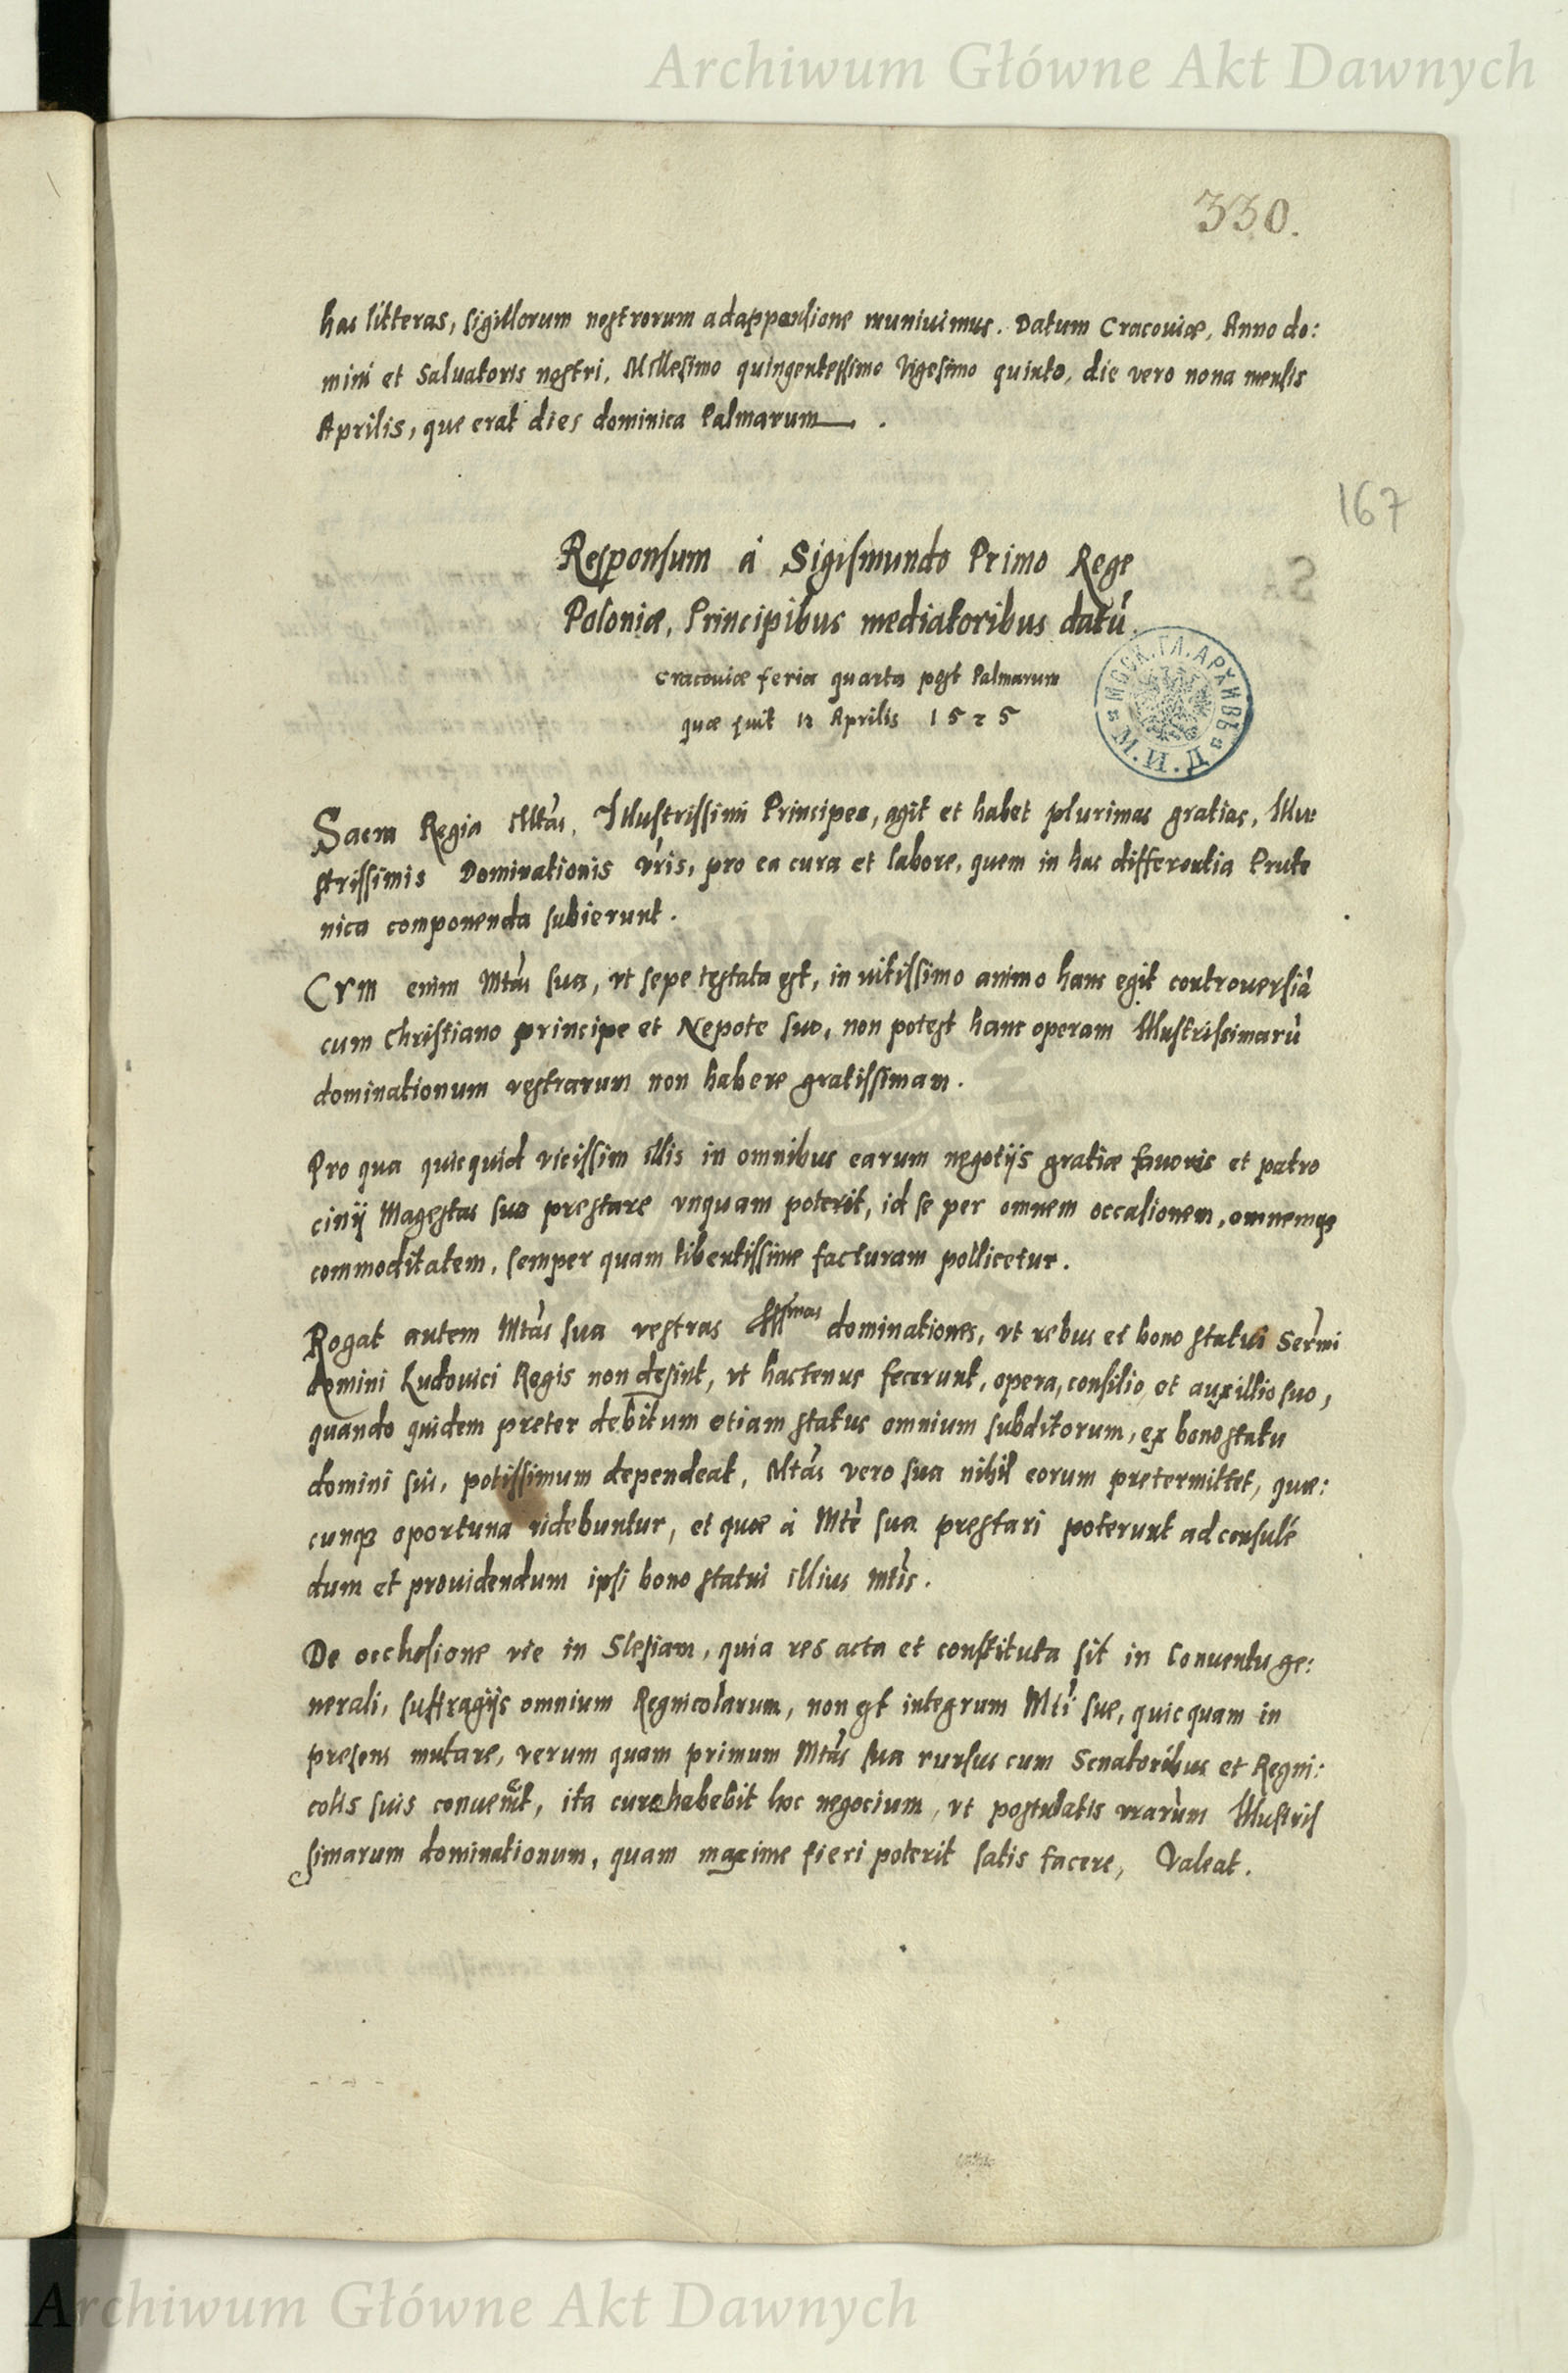 Archiwum Główne Akt Dawnych
330.
has litteras, sigillorum nostrorum adappensione muniuimus. Datum Cracouiæ, Anno do:
mini et Saluatoris nostri, Millesimo quingentessimo Vigesimo quinto, die vero nona mensis
Aprilis, que erat dies dominica Palmarum
167
Responsum á Sigismundo Primo Rege
Poloniæ, Principibus mediatoribus datũ
Cracouiæ feria quarta post Palmarum
quæ fuit 12 Aprilis 1525
МОСК. ГЛ. АРХИВЪ М. И. Д.
Sacra Regia Mtás, Illustrissimi Principes, agit et habet plurimas gratias, Illu:
strissimis Dominationis vris, pro ea cura et labore, quem in hac differentia Prute
nica componenda subierunt.
Cvm enim Mtás sua, vt sepe testata est, in uitissimo animo hanc egit controuersiã
cum Christiano principe et Nepote suo, non potest hanc operam Illustrissimarũ
dominationum vestrarum non habere gratissimam.
Pro qua quicquid vicissim illis in omnibus earum negotijs gratiæ fauoris et patro
cinij Magestas sua prestare vnquam poterit, id se per omnem occasionem, omnemqꝫ
commoditatem, semper quam libentissime facturam pollicetur.
Rogat autem Mtás sua vestras Illmas dominationes, vt rebus et bono statui Sermi
domini Ludouici Regis non desint, vt hactenus fecerunt, opera, consilio, et auxillio suo,
quando quidem preter debitum etiam status omnium subditorum, ex bono statu
domini sui, potissimum dependeat, Mtás vero sua nihil eorum pretermittet, quæ:
cunqꝫ oportuna videbuntur, et quæ á Mte sua prestari poterunt ad consulẽ
dum et prouidendum ipsi bono statui illius Mtis.
De occlusione vie in Slesiam, quia res acta et constituta sit in Conuentu ge:
nerali, suffragijs omnium Regnicolarum, non est integrum Mti sue, quicquam in
presens mutare, verum quam primum Mtás sua rursus cum Senatoribus et Regni:
colis suis conuenerit, ita cure habebit hoc negocium, vt postulatis vrarum Illustris
simarum dominationum, quam maxime fieri poterit satis facere, Valeat.
Archiwum Główne Akt Dawnych